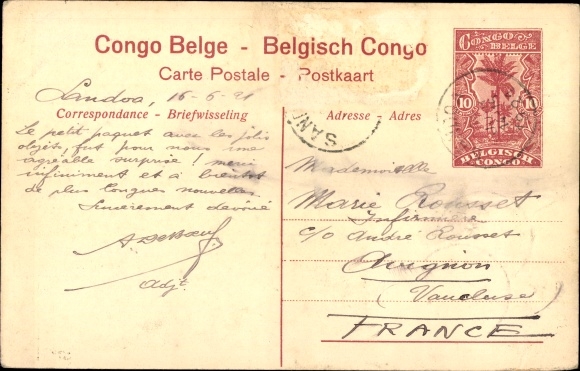 Congo Belge - Belgisch Congo
Carte Postale - Postkaart
Sandoa, 16-6-21
Correspondance - Briefwisseling
Le petit paquet avec les jolis
objets, fut pour nous une
agréable surprise! merci
infiniment et à bientôt
de plus longues nouvelles.
Sincèrement dévoué
A. DeBoeuf
Adjt.
Adresse - Adres
SAND
Mademoiselle
Marie Rousset
Infirmière
c/o André Rousset
Avignon
(Vaucluse)
FRANCE
CONGO
BELGE
10 10
BELGISCH
CONGO